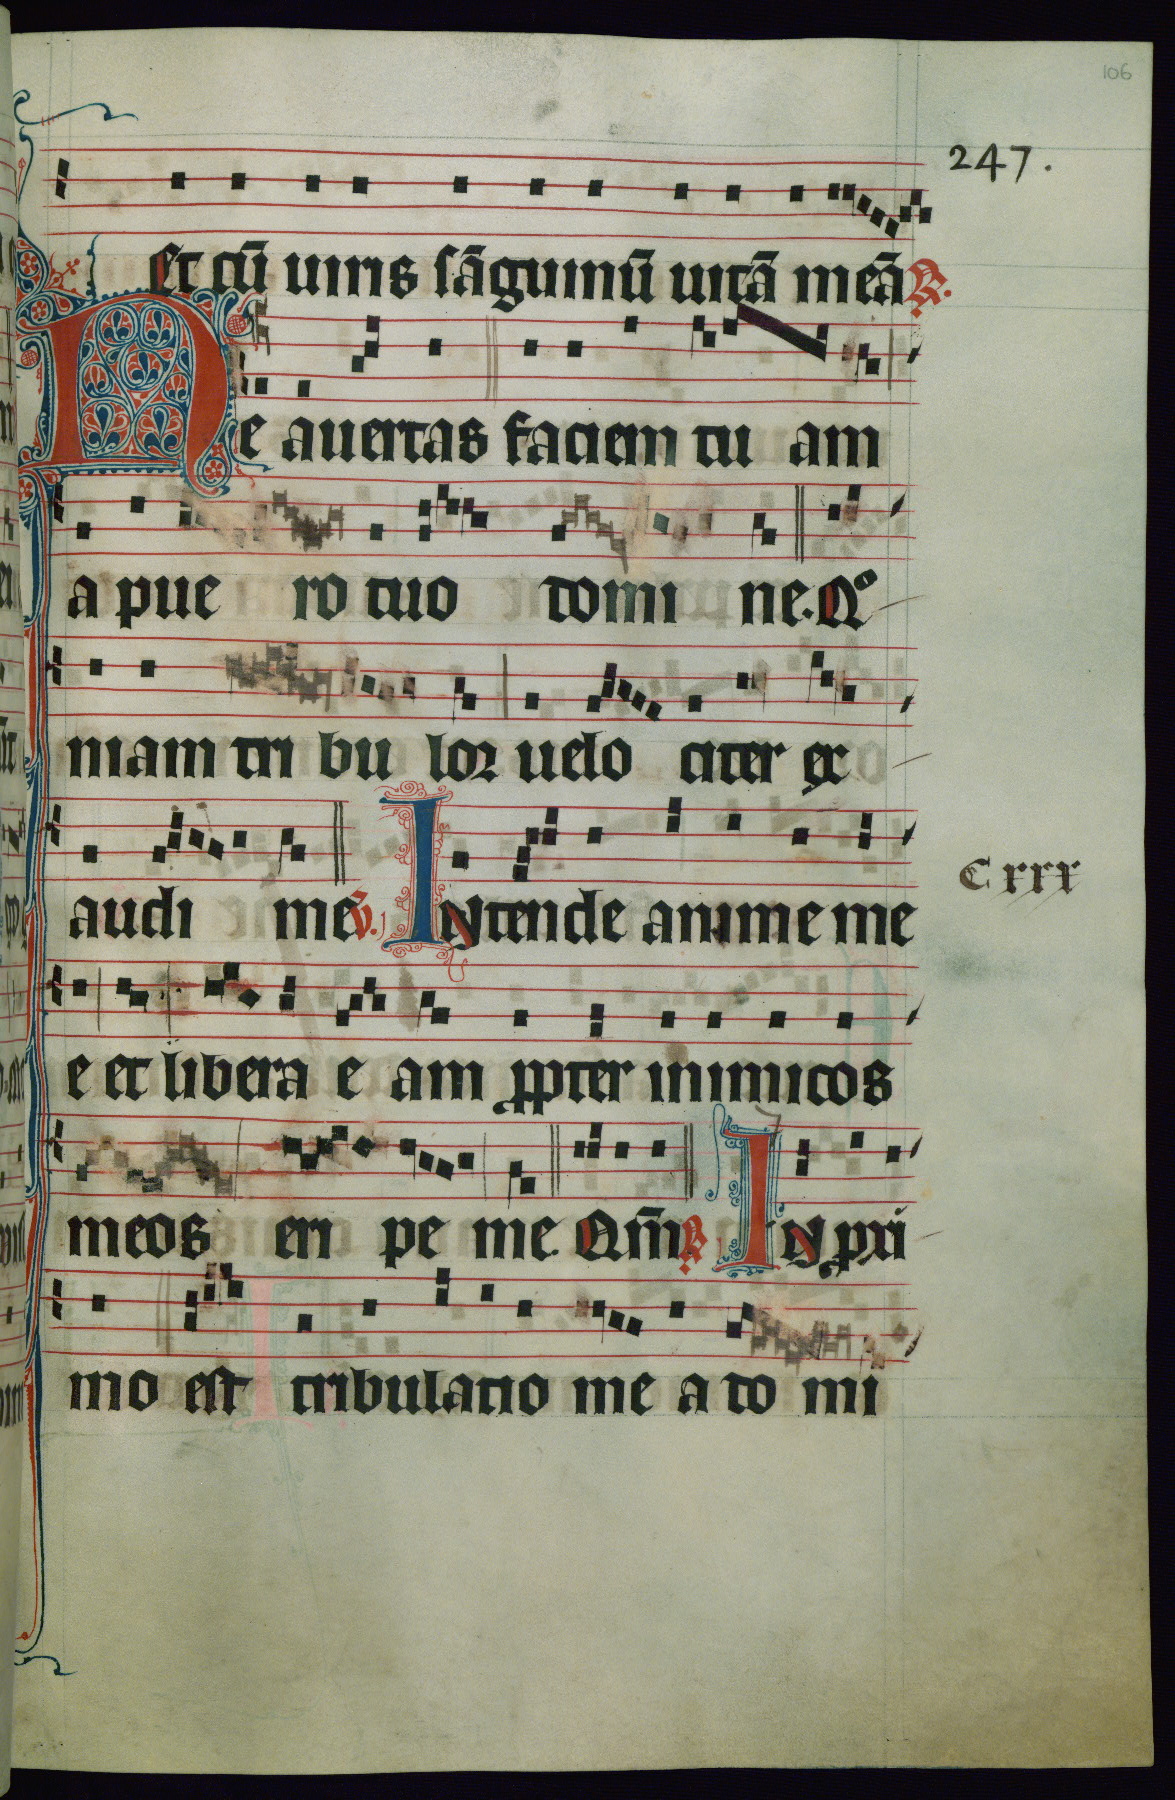 106
247.
Et cū uiris sāguinū uitā meā R.
Ne auertas faciem tu am
a pue ro tuo domi ne. Qº
niam tri bu lor uelo citer ex
audi me V. Intende anime me
Cxxx
e et libera e am ꝓpter inimicos
meos eri pe me. Qm̄ R In pri
mo est tribulatio me a do mi